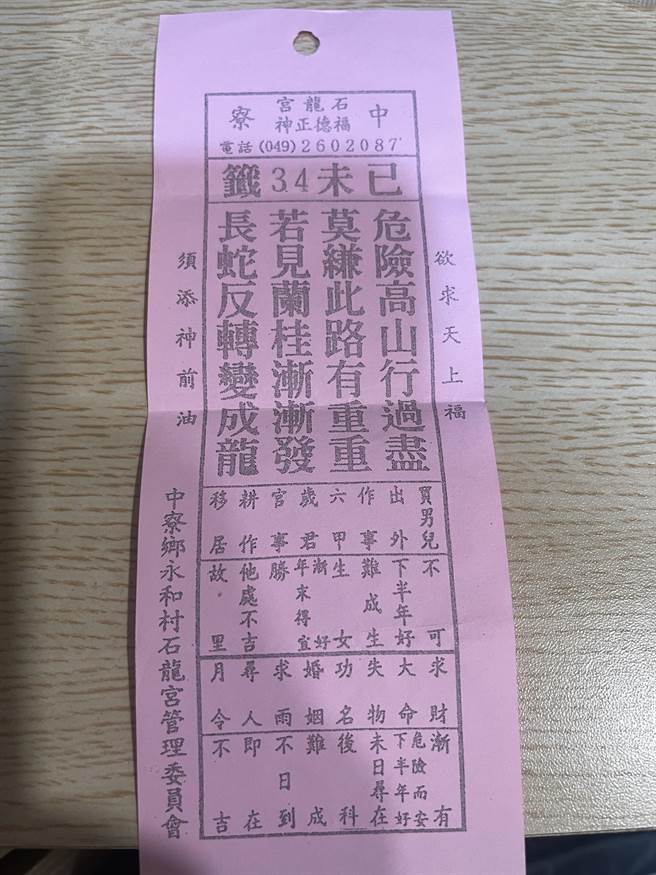 中寮
石龍宮
福德正神
電話(049)2602087
已未34籤
欲求天上福
危險高山行過盡
莫縑此路有重重
若見蘭桂漸漸發
長蛇反轉變成龍
須添神前油
買男兒 不可
出外 下半年好
作事 難成生
六甲 生女
歲君 漸好年末得宜
官事 勝
耕作 他處不吉
移居 故里
求財 漸有
大命 危險而安下半年好
失物 未日尋在
功名 後科
婚姻 難成
求雨 不日到
尋人 即在
月令 不吉
中寮鄉永和村石龍宮管理委員會